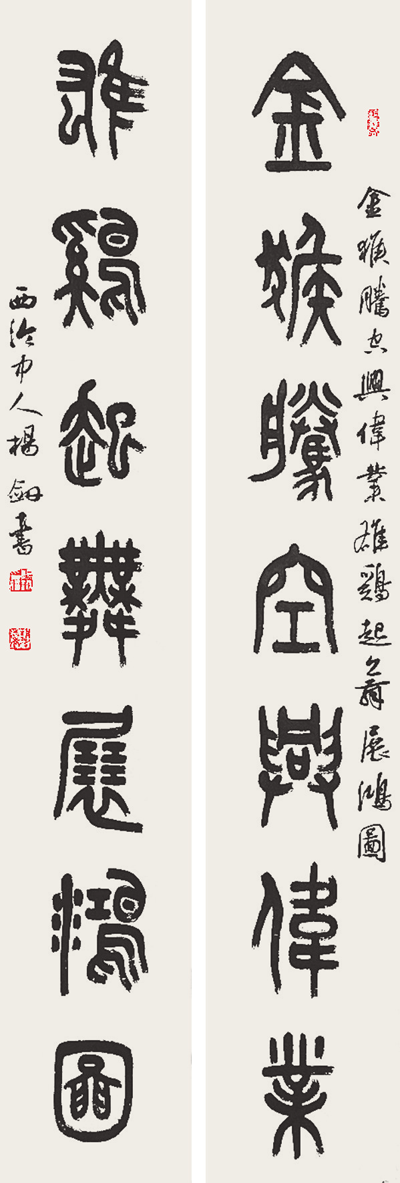 金猴騰空興偉業
雄鷄起舞展鴻圖
金猴騰空興偉業雄鷄起舞展鴻圖
西泠中人楊劍書